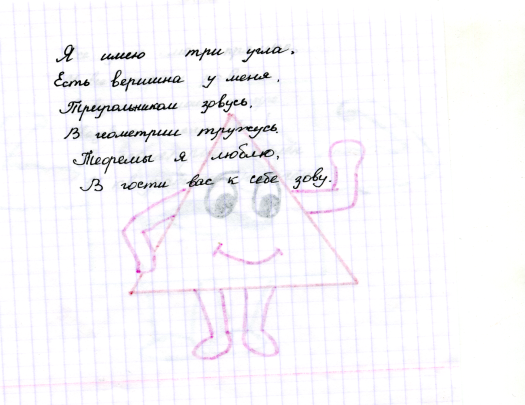 Я имею три угла,
Есть вершина у меня,
Треугольником зовусь,
В геометрии тружусь.
Теоремы я люблю,
В гости вас к себе зову.